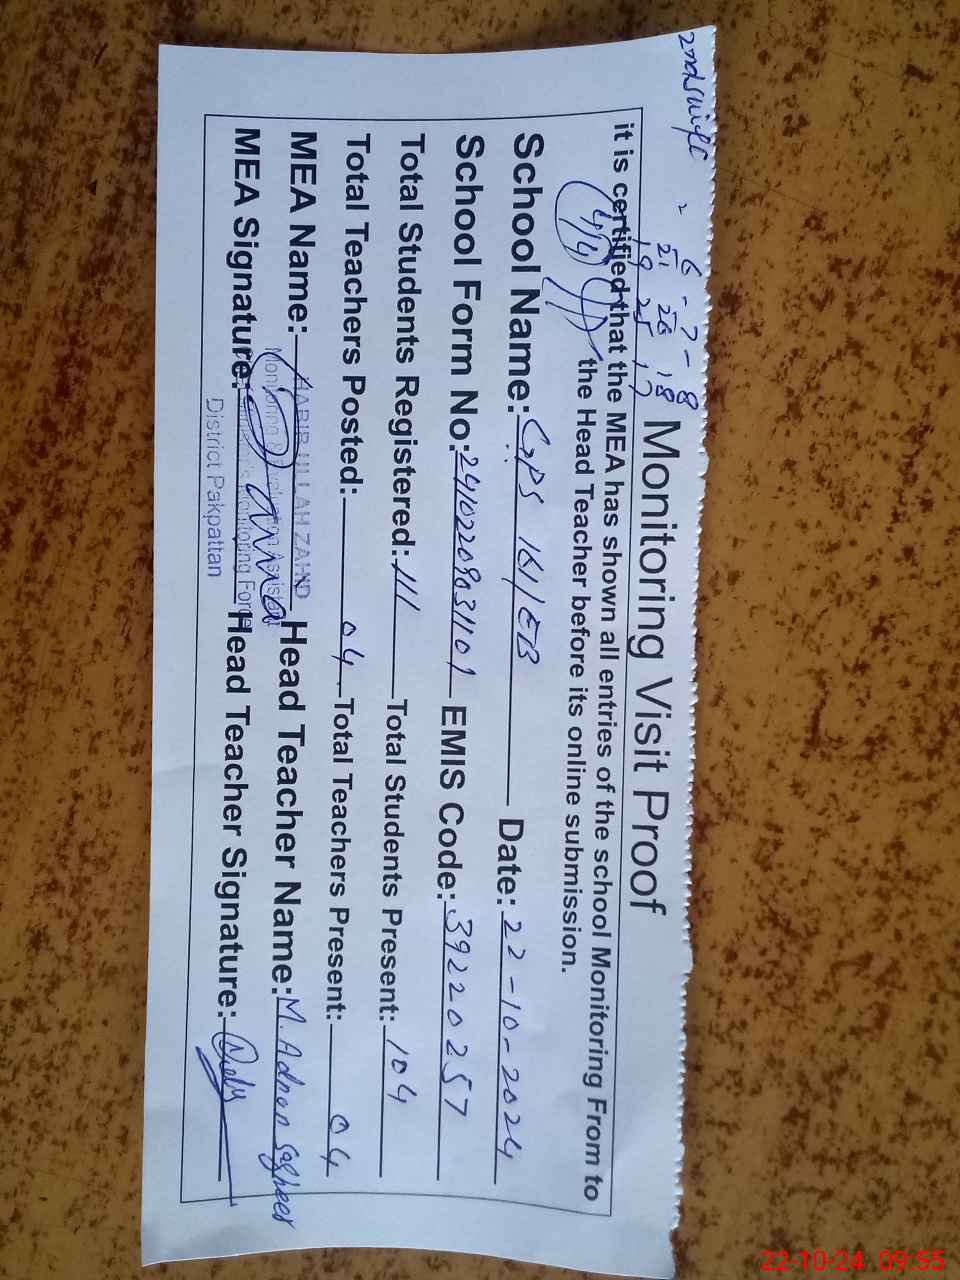 6 - 7 - 8
21 26 18
19 25 17
Monitoring Visit Proof
it is certified that the MEA has shown all entries of the school Monitoring From to
4/4 the Head Teacher before its online submission.
School Name: GPS 161/EB Date: 22-10-2024
School Form No: EMIS Code: 39220257
Total Students Registered: 111 Total Students Present: 104
Total Teachers Posted: 04 Total Teachers Present: 04
MEA Name: HABIB ULLAH ZAHID Head Teacher Name: M. Adnan Sagheer
Monitoring & Evaluation Assistant
MEA Signature: Monitoring Force Head Teacher Signature:
District Pakpattan
22-10-24 09:55